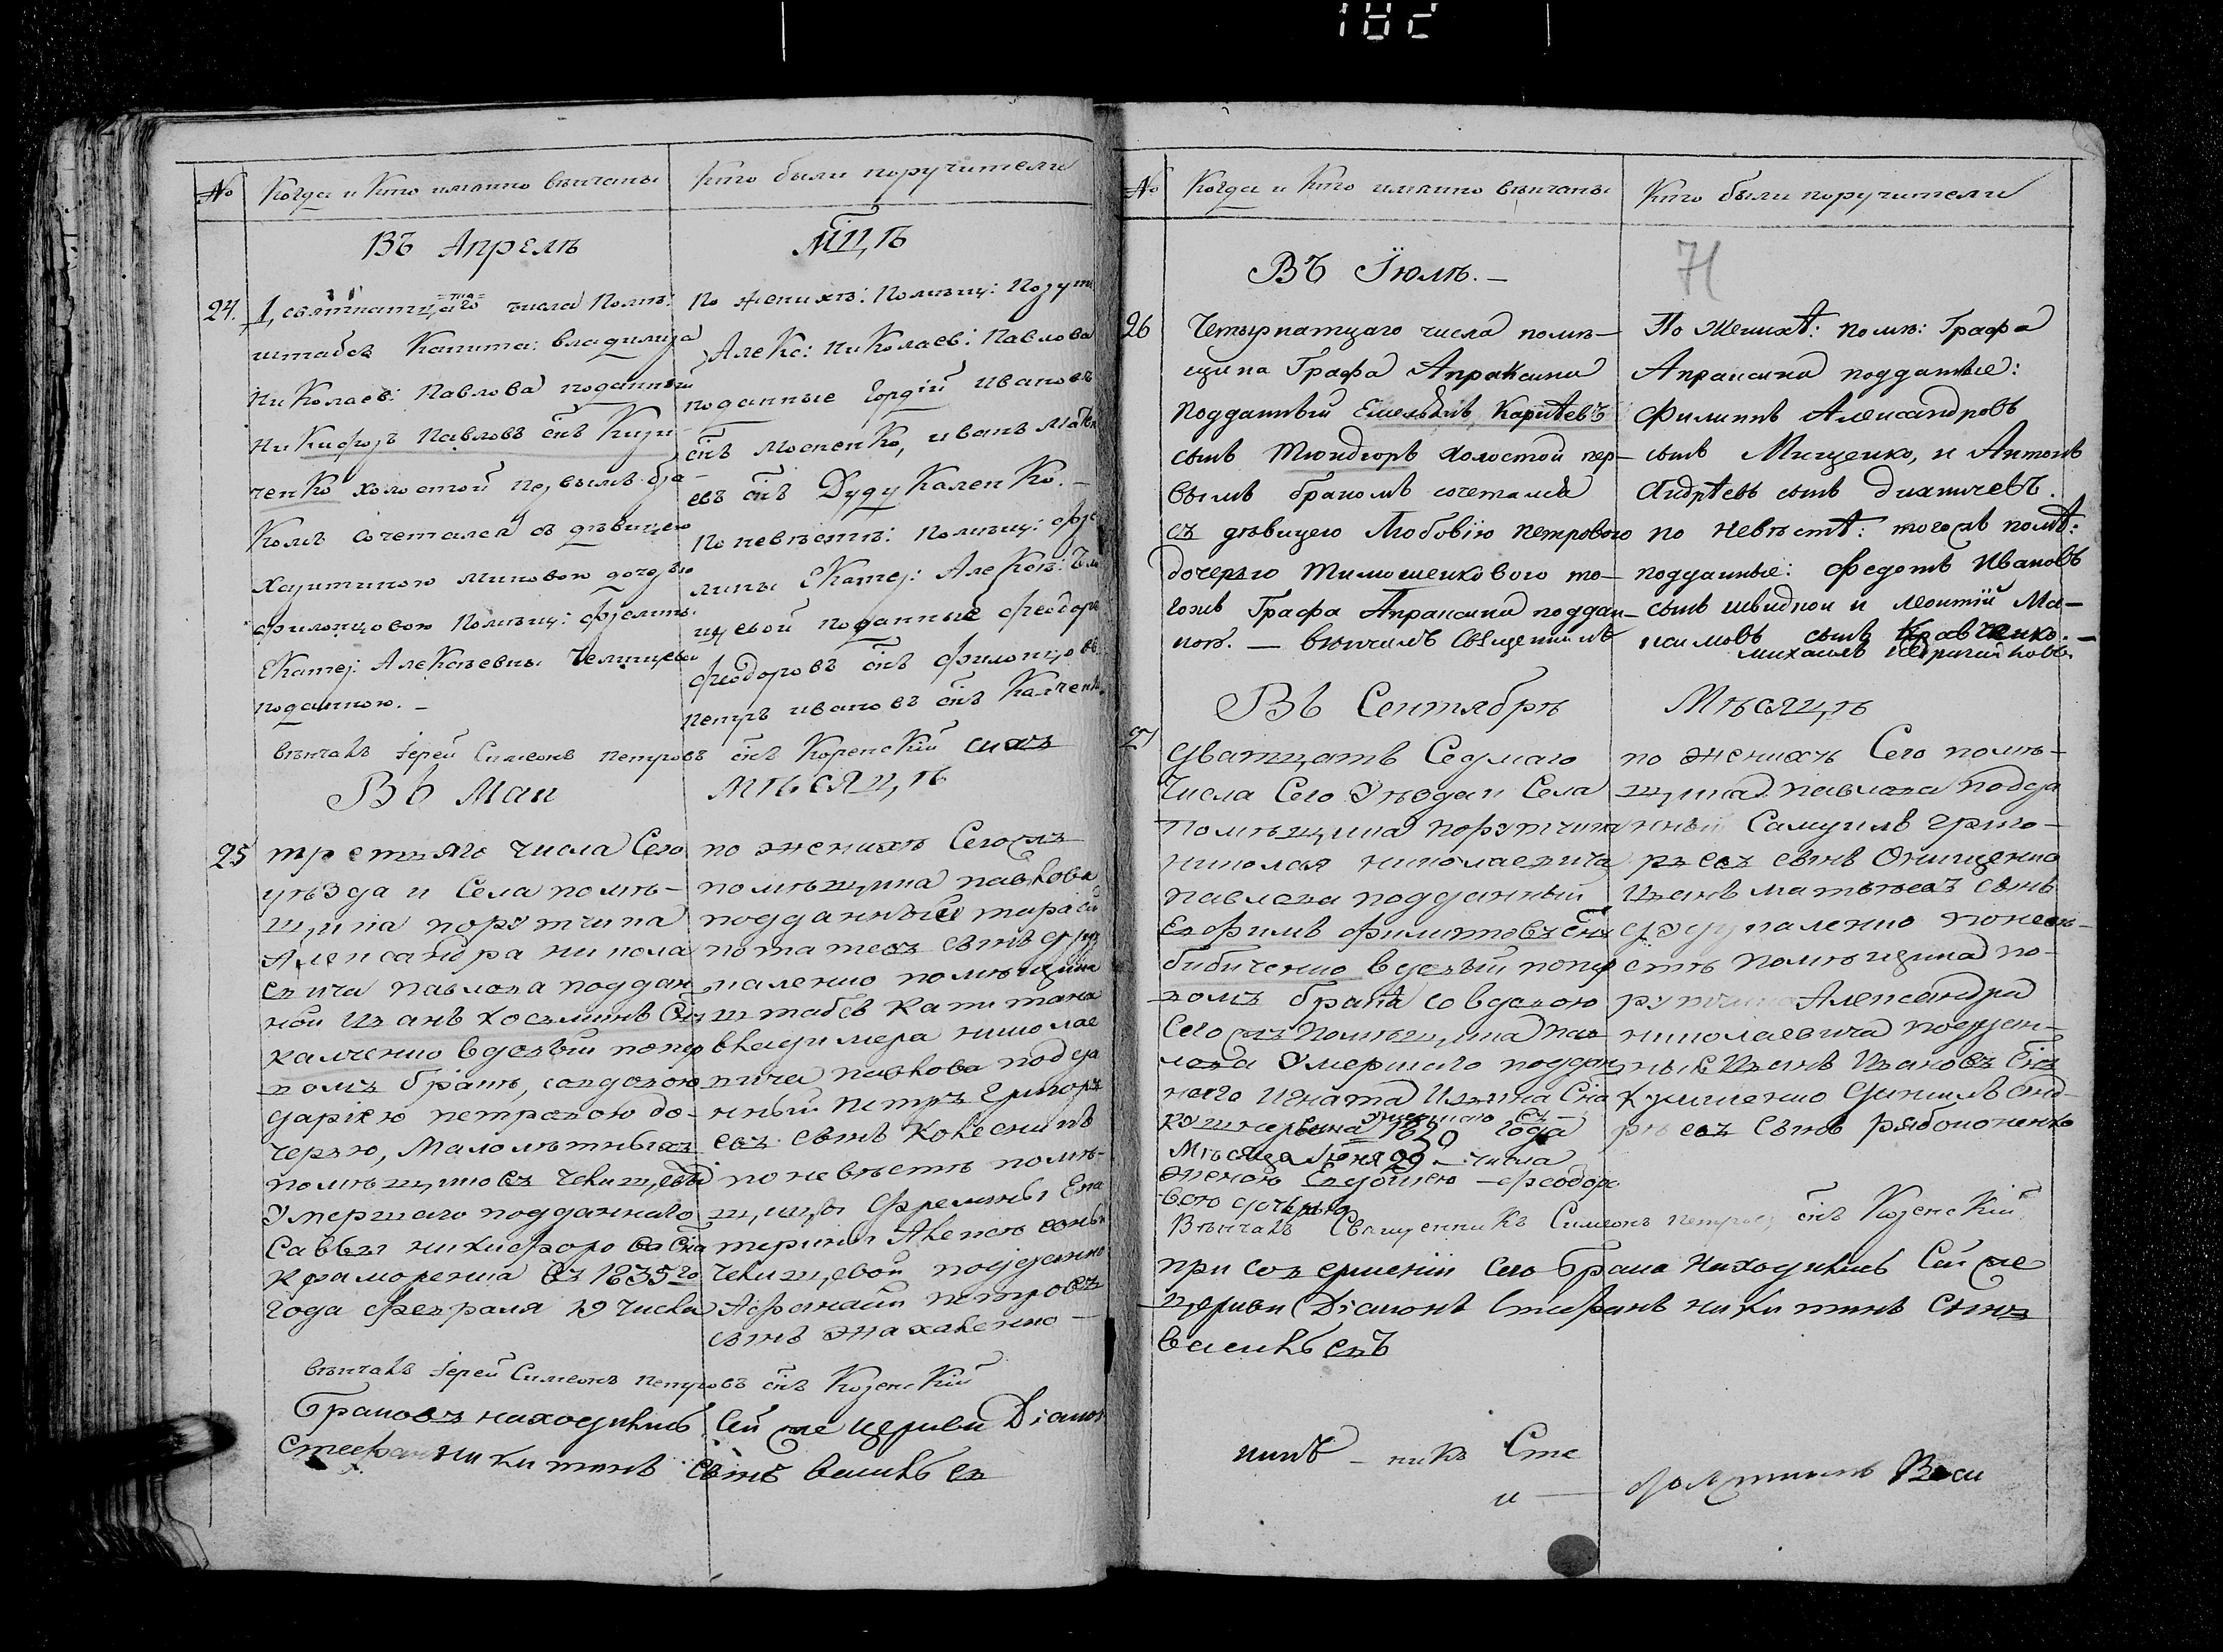 182
№ Когда и Кто имянно вѣнчаны
Кто были поручители
Въ Апрелѣ
Мцѣ
24.
числа помѣ:
штабсъ Капита: Владимира
Николаев: Павлова поданный
Никифоръ Павловъ снъ
ченко холостой первымъ бра-
комъ сочетался съ дѣвицею
Харитиною Миновою дочерью
Филонцовою Помѣщ: Фрелины
Екатер: Алексѣевны Челищевой
поданною. –
По женихѣ: Помѣщ: Поруч
Алекс: Николаев: Павлова
поданные Гордій Ивановъ
снъ Мосенко, Иванъ Матвѣ
евъ снъ Дудукаленко. –
По невѣстѣ: Помѣщ: Фре
лины Екатер: Алексѣ: Чел
ищевой поданные Феодоръ
Феодоровъ снъ Филонцовъ
Петръ Ивановъ снъ Калченко
вѣнчалъ Іерей Симеонъ Петровъ снъ Козенскій
Въ Маи
мѣсяцѣ
25 третяго числа Сего
уѣзда и Села помѣ-
щика порутчика
Александра Никола
евича Павлова поддан
ной Иванъ Козминъ Снъ
Калченко вдовый
вомъ бракѣ, со вдовою
Даріею Петровою до-
черью, малолѣтныхъ
помѣщиковъ
умершаго подданнаго
Саввы Никифорова Сна
Краморенка въ 1835го
года февраля 19 числа
по женихѣ Сегожъ
помѣщика Павлова
подданный Тарасій
Потаповъ сынъ Дуду
каленко помѣщика
штабсъ капитана
Владимера Николае
вича Павлова подда
нный Петръ Григорь
евъ сынъ Колесникъ
по невѣстѣ помѣ-
щицы Фрелины Ека
терины Алексѣевны
Челищевой подданно
Афанасій Петровъ
сынъ Жахаленко –
вѣнчалъ Іерей Симеонъ Петровъ снъ Козенскій
Браковъ находились Сей же церкви Діакон
Стефанъ Никитинъ сынъ Васильев
№ Когда и Кто имянно вѣнчаны
Кто были поручители
71
Въ Іюлѣ. –
26 Четырнатцаго числа помѣ-
щика Графа Апраксина
подданный Емельянъ
сынъ холостой пер-
вымъ бракомъ сочетался
съ дѣвицею Любовію Петровою
дочерью Тимошенковою то-
гожъ Графа Апраксина поддан-
ною. – вѣнчалъ Священникъ
По женихѣ: помѣ: Графа
Апраксина подданные:
Филиппъ Александровъ
сынъ Мищенко, и Антонъ
Андрѣевъ сынъ
по невѣстѣ: тогожъ помѣ:
подданные: Федотъ Ивановъ
сынъ и Леонтій Ма-
ксимовъ сынъ Кравченко. –
Михаилъ
Въ Сентябрѣ
Мѣсяцѣ
27 Дватцать Седмаго
Числа Сего уѣзда и Села
Помѣщика порутчика
Николая Николаевича
Павлова подданный
Ефимъ Филиповъ Снъ
Бибиченко вдовый
вомъ бракѣ со вдовою
Сегожъ Помѣщика Пав-
лова умершаго поддан
наго Игната Ильина Сна
Кушнерика умершаго въ
1830 года
Мѣсяца Іюня 29 – числа
женою Евдокіею – Феодоро
вою дочерью
по женихѣ Сего помѣ-
щика Павлова подда
нный Самуилъ Григо-
рьевъ сынъ Онищенко
Иванъ Матвѣевъ сынъ
Дудукаленко по невѣ-
стѣ помѣщика по-
рутчика Александра
Николаевича поддан-
ные Иванъ Ивановъ Снъ
Даниилъ Анд-
рѣевъ сынъ Рябоконенко
Вѣнчалъ Священникъ Симеонъ Петровъ снъ Козенскій
при совершеніи сего брака находились Сей же
церкви Діаконъ Стефанъ Никитинъ Сынъ
Васильевъ